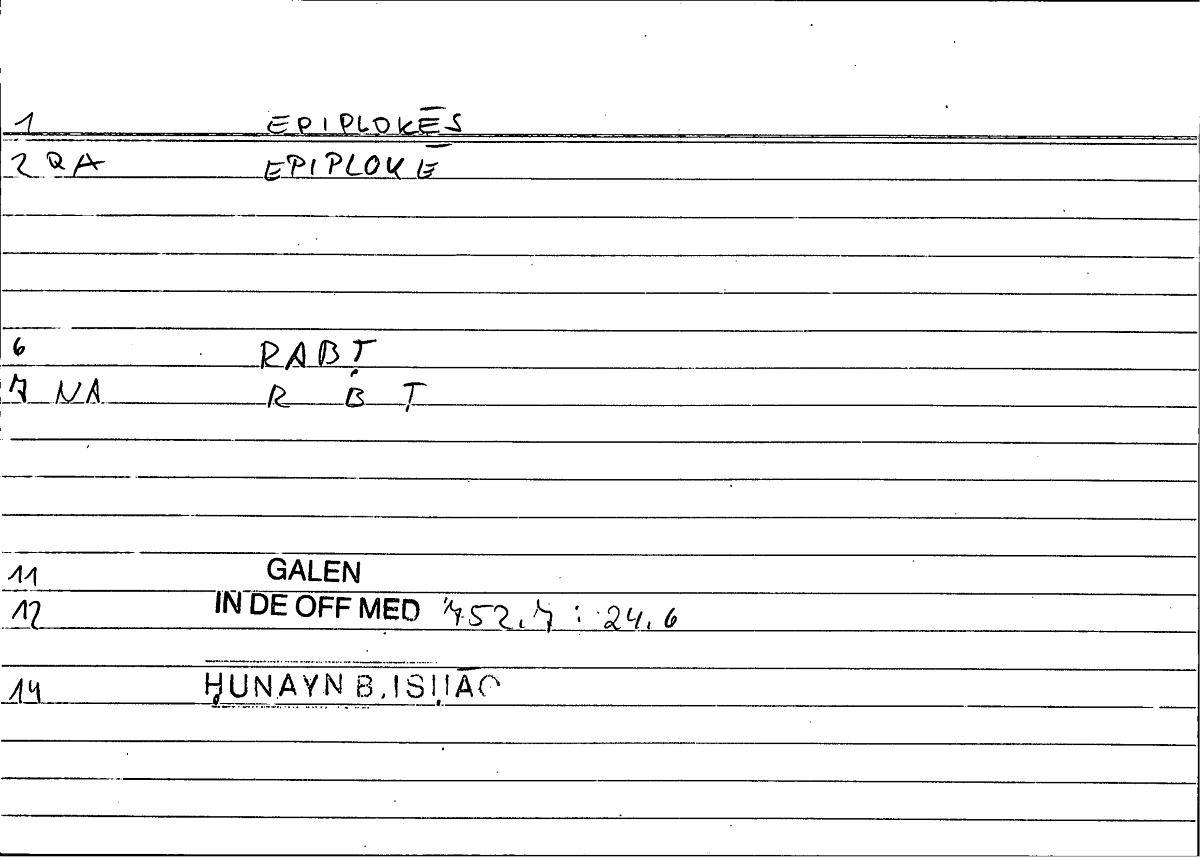 1 EPIPLOKĒS
2 QA EPIPLOKĒ
6 RABṬ
7 NA R B Ṭ
11 GALEN
12 IN DE OFF MED 752.7 : 24.6
14 ḤUNAYN B. ISḤĀQ